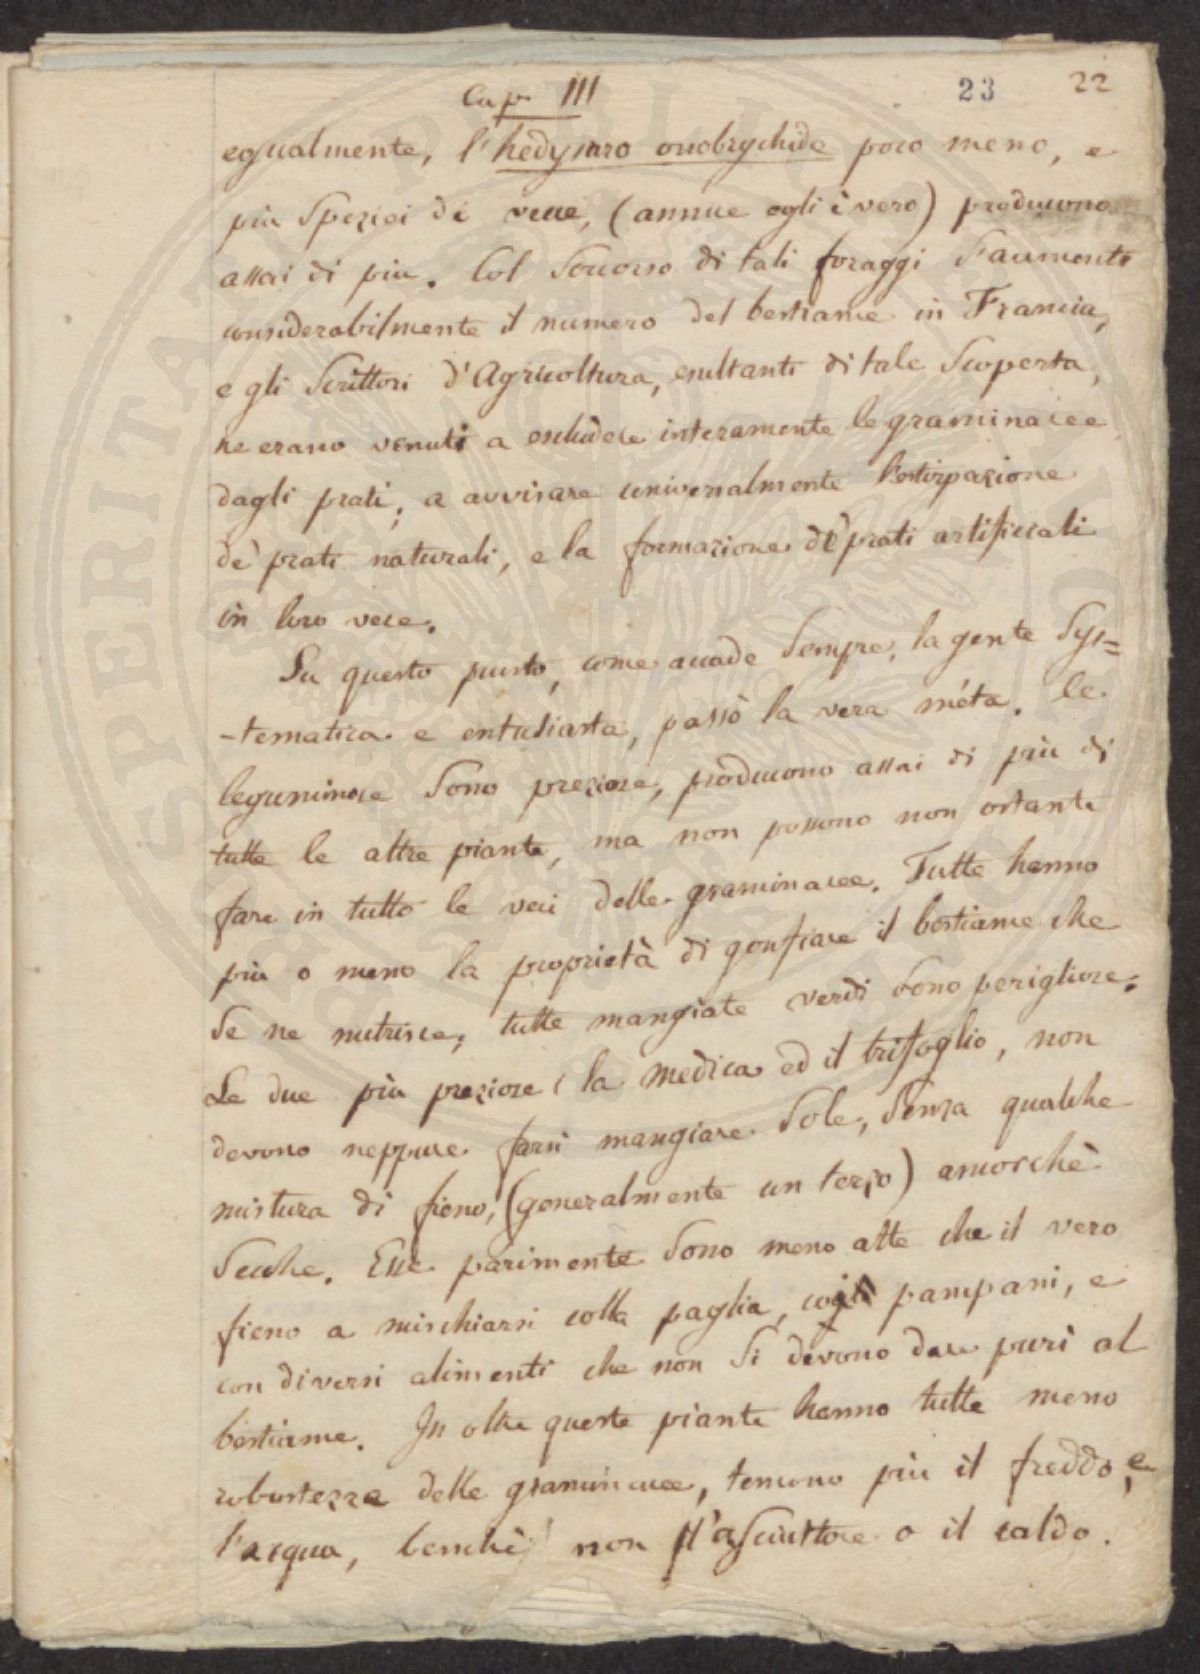 Cap. III
23
22
egualmente, l'hedysaro onobrychide poco meno, e
più spezici di vecce, (annue egli è vero) producono
assai di più. Col soccorso di tali foraggi s'aumentò
considerabilmente il numero del bestiame in Francia,
e gli Scrittori d'Agricoltura, esultanti di tale scoperta,
ne erano venuti a escludere interamente le graminacee
dagli prati; a avvisare universalmente l'estirpazione
de' prati naturali, e la formazione de' prati artificiali
in loro vece.
Su questo punto, come accade sempre, la gente Sys=
-tematica e entusiasta, passò la vera méta. le
leguminose sono preziose, producono assai di più di
tutte le altre piante, ma non possono non ostante
fare in tutto le veci delle graminacee. Tutte hanno
più o meno la proprietà di gonfiare il bestiame che
se ne nutrisce; tutte mangiate verdi sono perigliose;
Le due più preziose, la medica ed il trifoglio, non
devono neppure farsi mangiare sole, senza qualche
mistura di fieno, (generalmente un terzo) ancorchè
secche. Esse parimente sono meno atte che il vero
fieno a mischiarsi colla paglia, pampani, e
con diversi alimenti che non si devono dare puri al
bestiame. In oltre queste piante hanno tutte meno
robustezza delle graminacee, temono più il freddo, e
l'acqua, benchè non l'asciuttore o il caldo.